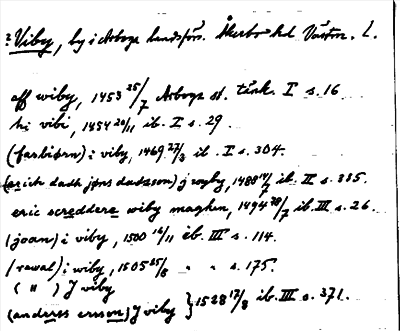 2 Viby, by i Arboga landsförs. Åkerbo hd Västm. l.
aff wiby, 1453 25/7 Arboga st. tänk. I s. 16
hi vibi, 1454 20/11 ib. I s. 29.
(farbiørn) i viby, 1469 27/3 ib. I s. 304.
(erich dath jøns dadzson) j wyby, 1488 14/7 ib. II s. 335.
eric screddere wiby maghen, 1494 28/7 ib. III s. 26.
(joan) i viby, 1500 16/11 ib. III s. 114.
(rawal) i wiby, 1505 25/8 " " s. 175.
( " ) J viby
(anderss ersson) J viby } 1528 17/8 ib. III s. 371.